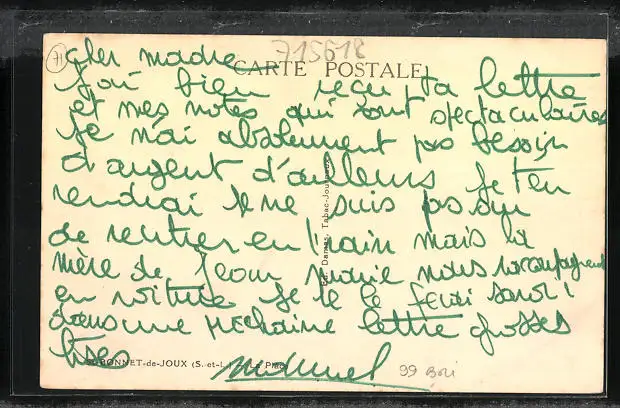 71
715618
CARTE POSTALE
Cher madre
J'ai bien reçu ta lettre
et mes notes qui sont spectaculaires
Je n'ai absolument pas besoin
d'argent d'ailleurs Je t'en
rendrai Je ne suis pas sûr
de rentrer en train mais la
mère de Jean Marie nous
en voiture Je te le ferai savoir
dans une prochaine lettre grosses
bises
BONNET-de-JOUX (S.-et-L.)
99 Boi